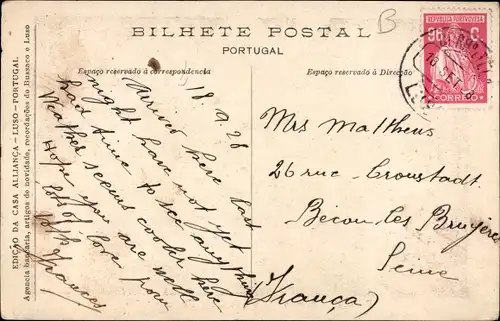 BILHETE POSTAL
PORTUGAL
B
Espaço reservado á correspondencia
Espaço reservado á Direcção
REPUBLICA PORTUGUESA
96 C.
CORREIO
EDIÇÃO DA CASA ALLIANÇA — LUSO — PORTUGAL
Agencia bancaria, artigos de novidade, recordações do Bussaco e Luso
18.9.28
Arrived here last
night have not yet
had time to see anything
Weather seems cooler here
Hope you are well
lots of love from
Frances
Mrs Mattheus
26 rue Croustadt
Bécon les Bruyeres
Seine
(França)